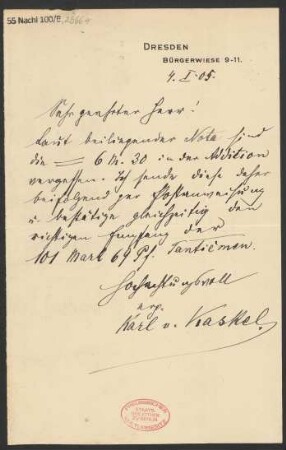 55 Nachl 100/B,
DRESDEN
BÜRGERWIESE 9-11.
4. X. 05.
Sehr geehrter Herr!
Laut beiliegender Nota sind
die = 6 M. 30 in der Addition
vergessen. Ich sende diese daher
beifolgend per Postanweisung
u. bestätige gleichzeitig den
richtigen Empfang der
101 Mark 69 Pf. Tantièmen.
Hochachtungsvoll
erg.
Karl v. Kaskel.